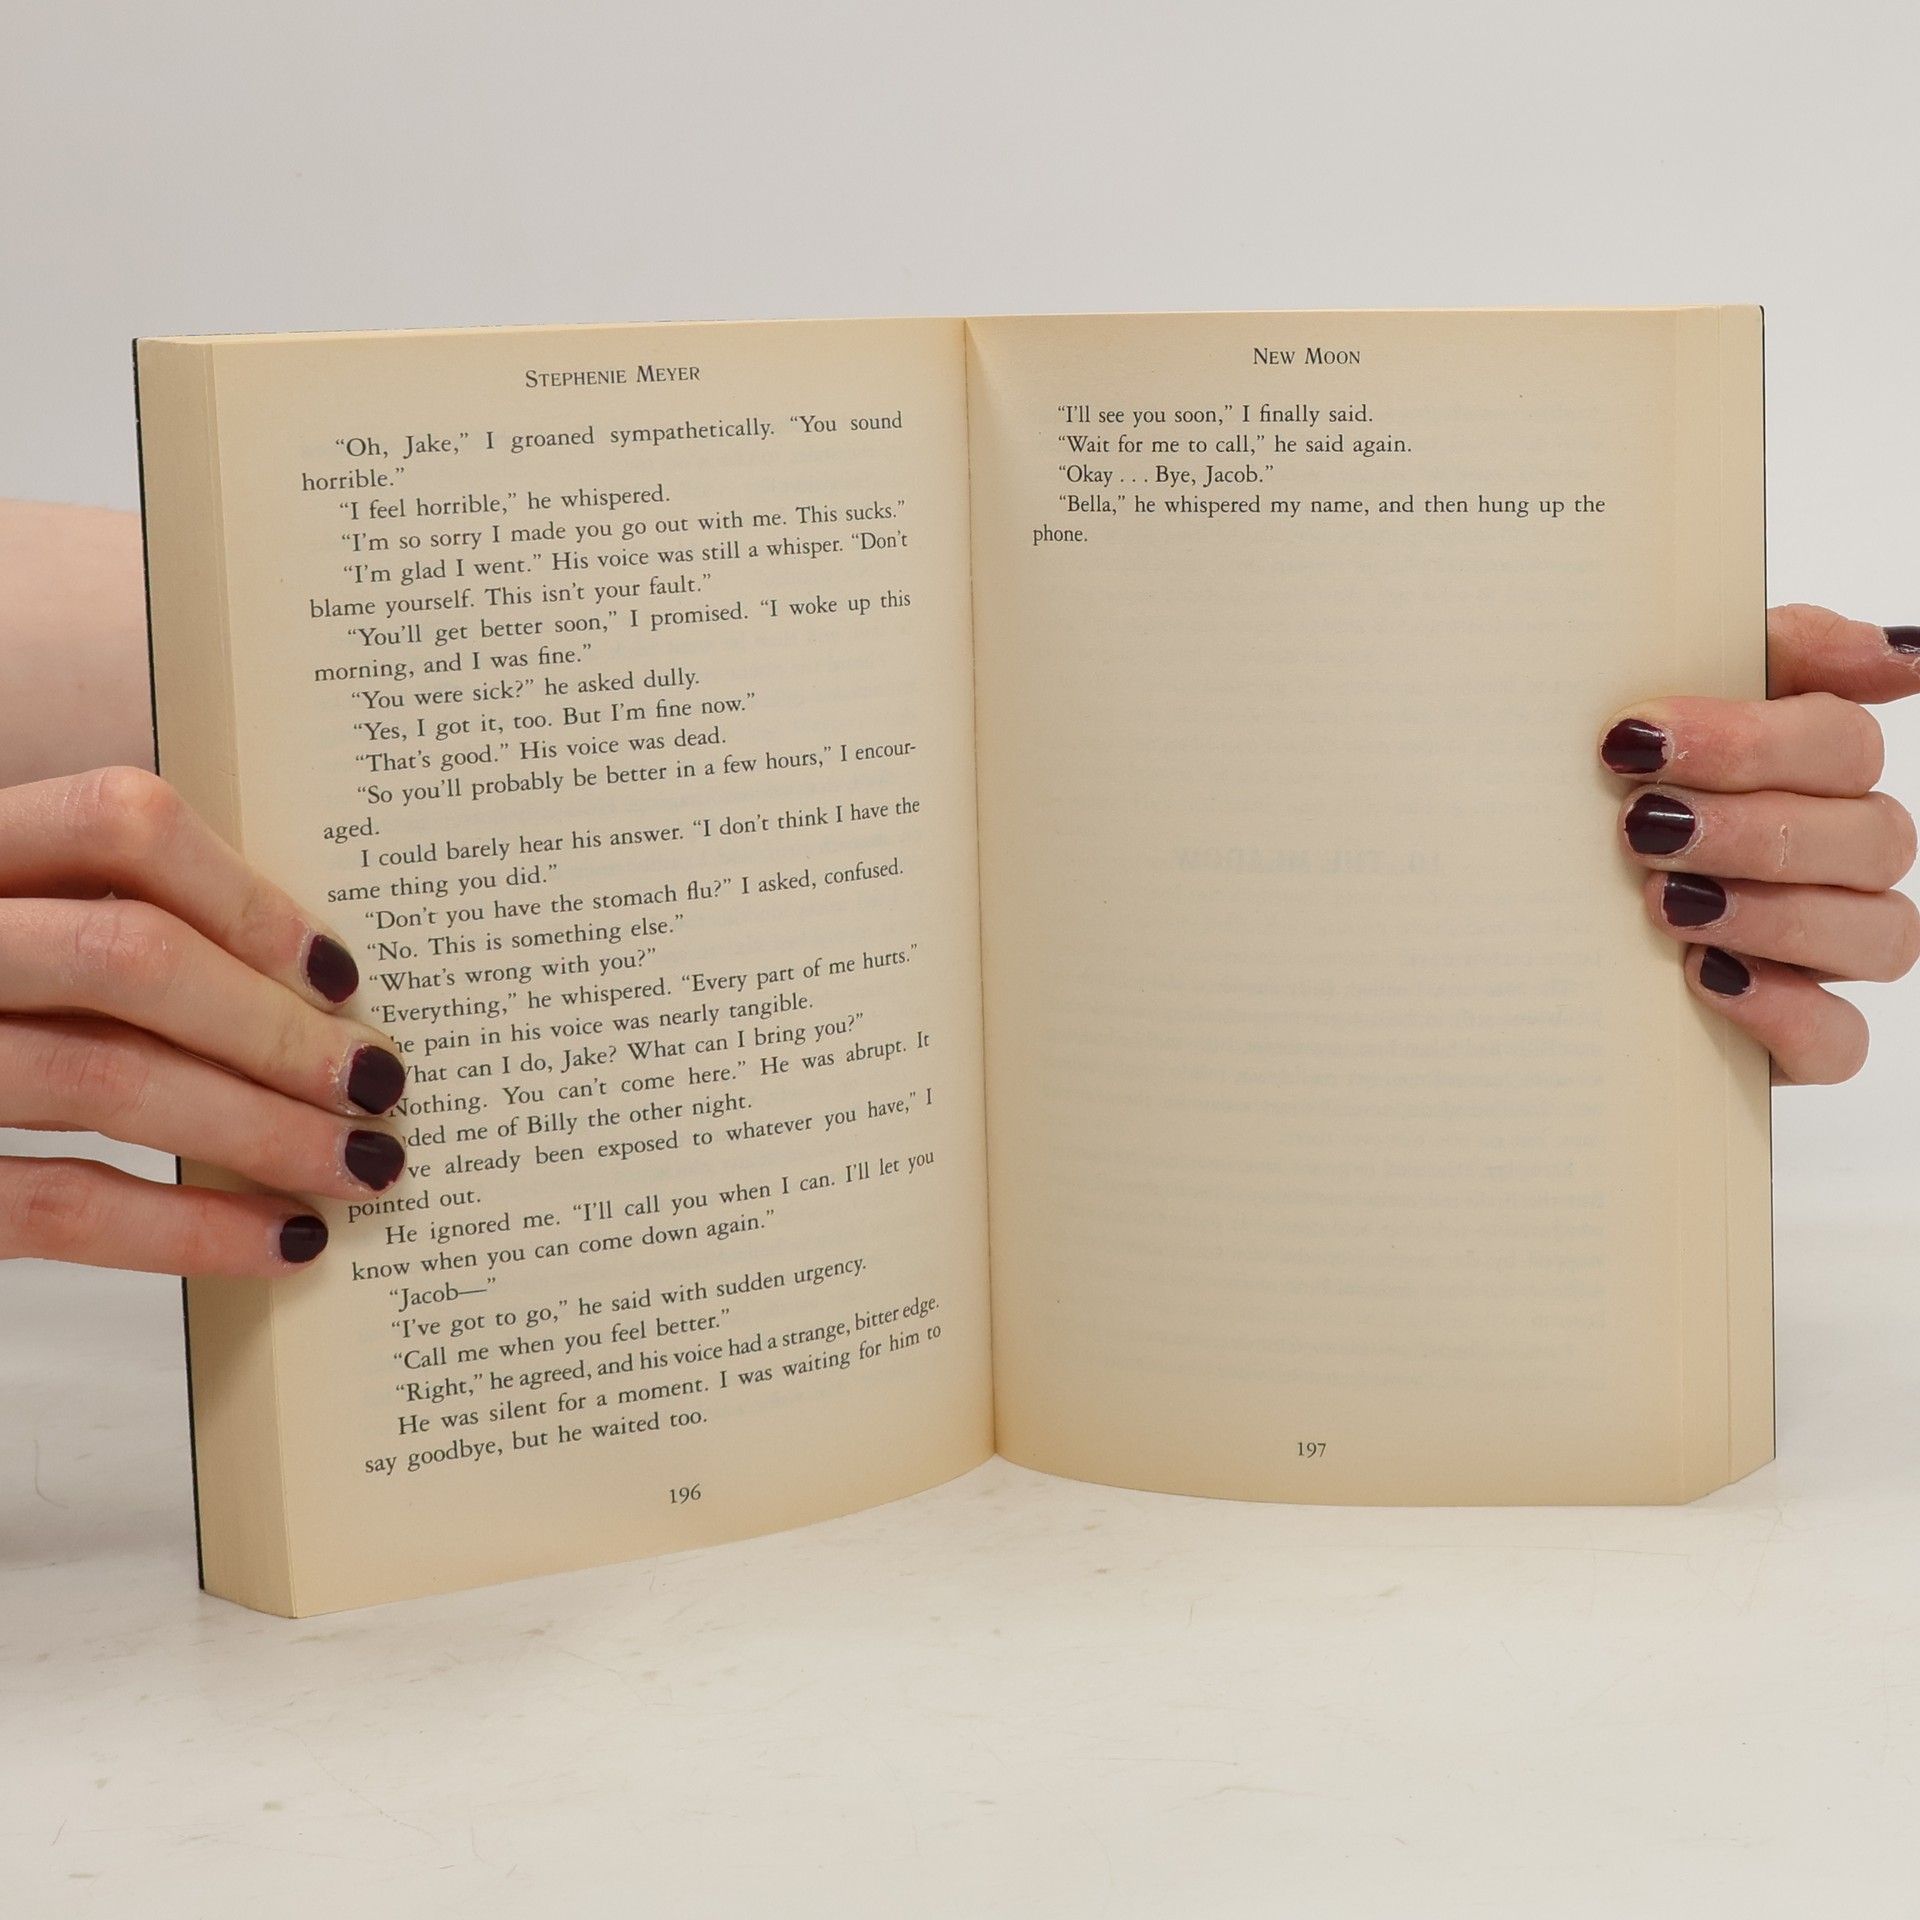 STEPHENIE MEYER
“Oh, Jake,” I groaned sympathetically. “You sound
horrible.”
“I feel horrible,” he whispered.
“I'm so sorry I made you go out with me. This sucks.”
“I'm glad I went.” His voice was still a whisper. “Don't
blame yourself. This isn't your fault.”
“You'll get better soon,” I promised. “I woke up this
morning, and I was fine.”
“You were sick?” he asked dully.
“Yes, I got it, too. But I'm fine now.”
“That's good.” His voice was dead.
“So you'll probably be better in a few hours,” I encour-
aged.
I could barely hear his answer. “I don't think I have the
same thing you did.”
“Don't you have the stomach flu?” I asked, confused.
“No. This is something else.”
“What's wrong with you?”
“Everything,” he whispered. “Every part of me hurts.”
he pain in his voice was nearly tangible.
hat can I do, Jake? What can I bring you?”
Nothing. You can't come here.” He was abrupt. It
ded me of Billy the other night.
ve already been exposed to whatever you have,” I
pointed out.
He ignored me. “I'll call you when I can. I'll let you
know when you can come down again.”
“Jacob—”
“I've got to go,” he said with sudden urgency.
“Call me when you feel better.”
“Right,” he agreed, and his voice had a strange, bitter edge.
He was silent for a moment. I was waiting for him to
say goodbye, but he waited too.
196
NEW MOON
“I'll see you soon,” I finally said.
“Wait for me to call,” he said again.
“Okay . . . Bye, Jacob.”
“Bella,” he whispered my name, and then hung up the
phone.
197